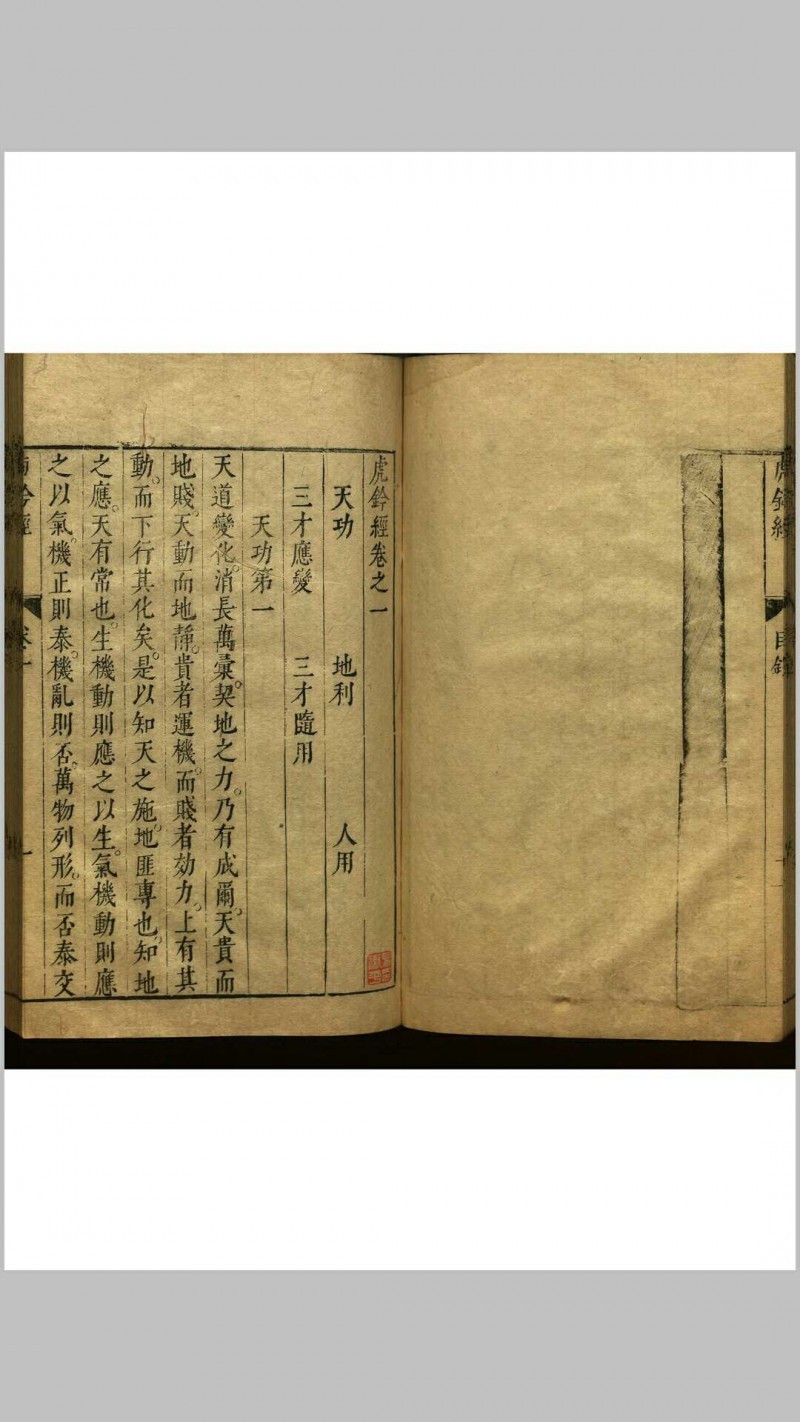 虎鈐經
目錄
虎鈐經卷之一
天功 地利 人用
三才應變 三才隨用
天功第一
天道變化。消長萬彙。契地之力。乃有成爾。天貴而
地賤。天動而地靜。貴者運機。而賤者効力。上有其
動。而下行其化矣。是以知天之施。地匪專也。知地
之應。天有常也。生機動則應之以生。氣機動則應
之以氣。機正則泰。機亂則否。萬物列形。而否泰交
虎鈐經
卷一
一